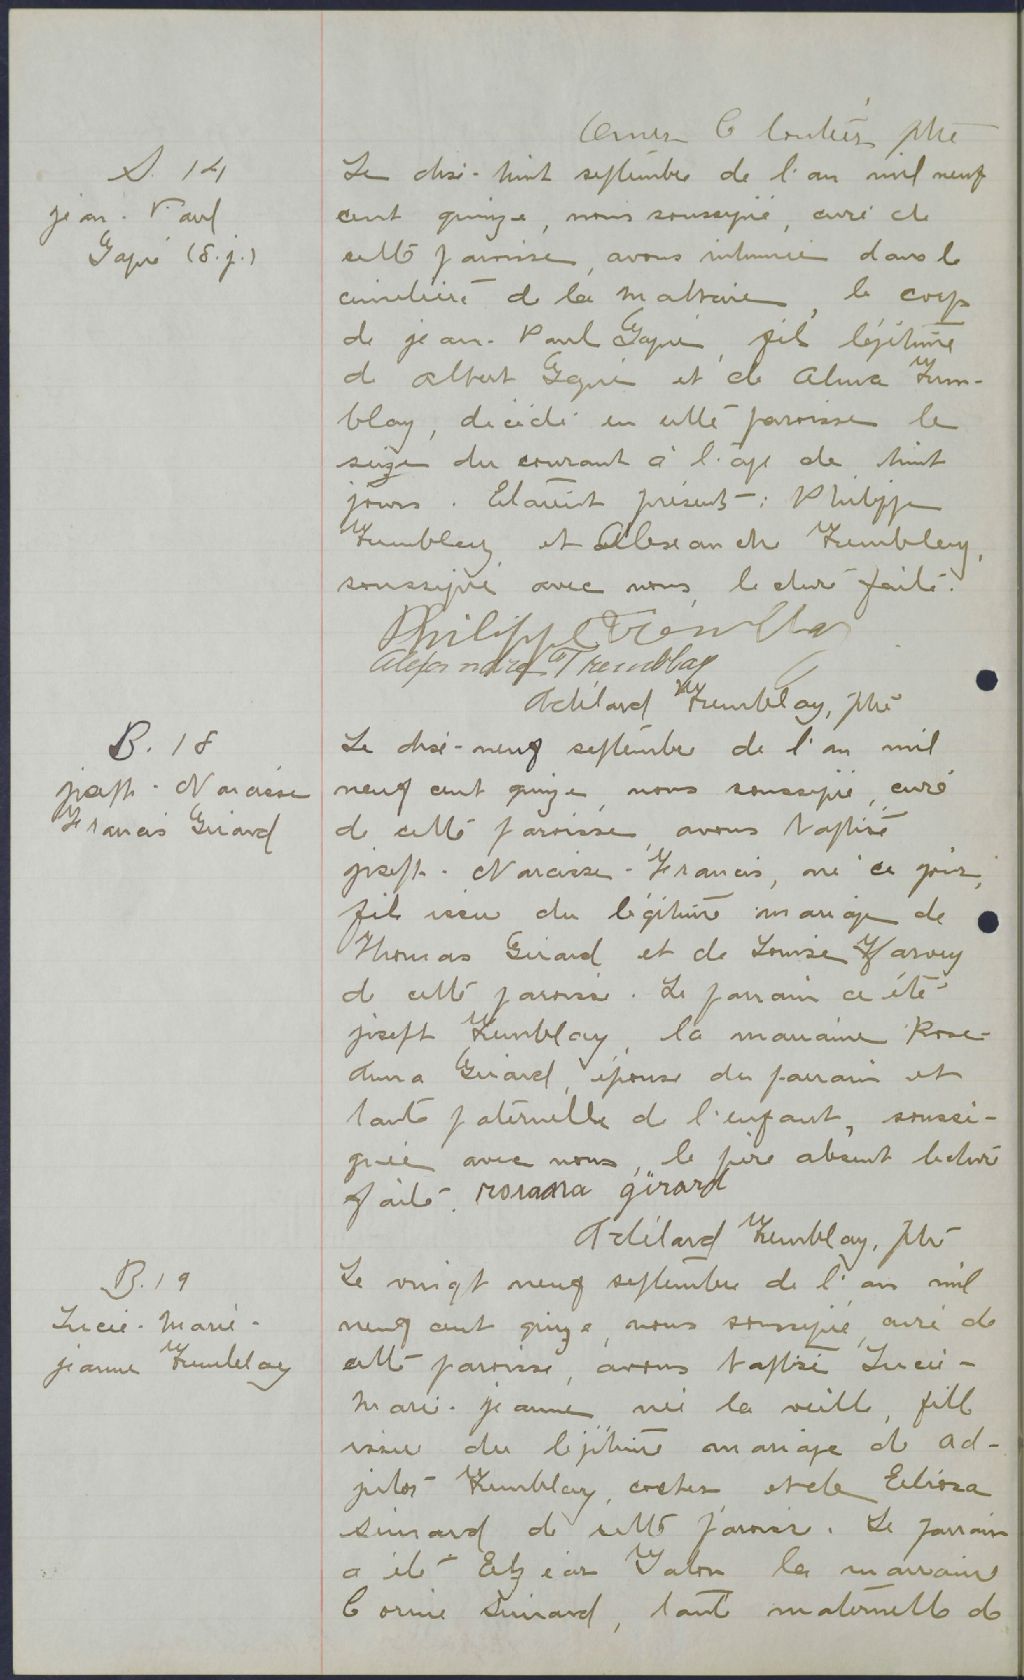 Cloutier ptre
S. 14
Jean-Paul
Gagné (8.j.)
Le dix-huit septembre de l'an mil neuf
cent quinze, nous soussigné, curé de
cette paroisse, avons inhumé dans le
cimetière de la Malbaie, le corp
de Jean-Paul Gagné, fils légitime
de Albert Gagné et de Alma Trem-
blay, décédé en cette paroisse le
seize du courant à l'âge de huit
jours. Etaient présents: Philippe
Tremblay et Alexandre Tremblay,
soussigné avec nous, lecture faite.
Philippe Tremblay
Alexandre Tremblay
Adélard Tremblay, ptre
B. 18
Joseph-Narcisse
Francis Girard
Le dix-neuf septembre de l'an mil
neuf cent quinze, nous soussigné, curé
de cette paroisse, avons baptisé
Joseph-Narcisse-Francis, né ce jour,
fils issu du légitime mariage de
Thomas Girard et de Louise Harvey
de cette paroisse. Le parrain a été
Joseph Tremblay, la marraine Rose-
Anna Girard, épouse du parrain et
tante paternelle de l'enfant, soussi-
gnée avec nous, le père absent lecture
faite. rosanna girard
Adélard Tremblay, ptre
B. 19
Lucie-Marie-
Jeanne Tremblay
Le vingt neuf septembre de l'an mil
neuf cent quinze, nous soussigné, curé de
cette paroisse, avons baptisé Lucie-
Marie-Jeanne, née la veille, fille
issue du légitime mariage de Ad-
jutor Tremblay, et de
Simard de cette paroisse. Le parrain
a été Elzéar la marraine
Corine Simard, tante maternelle de